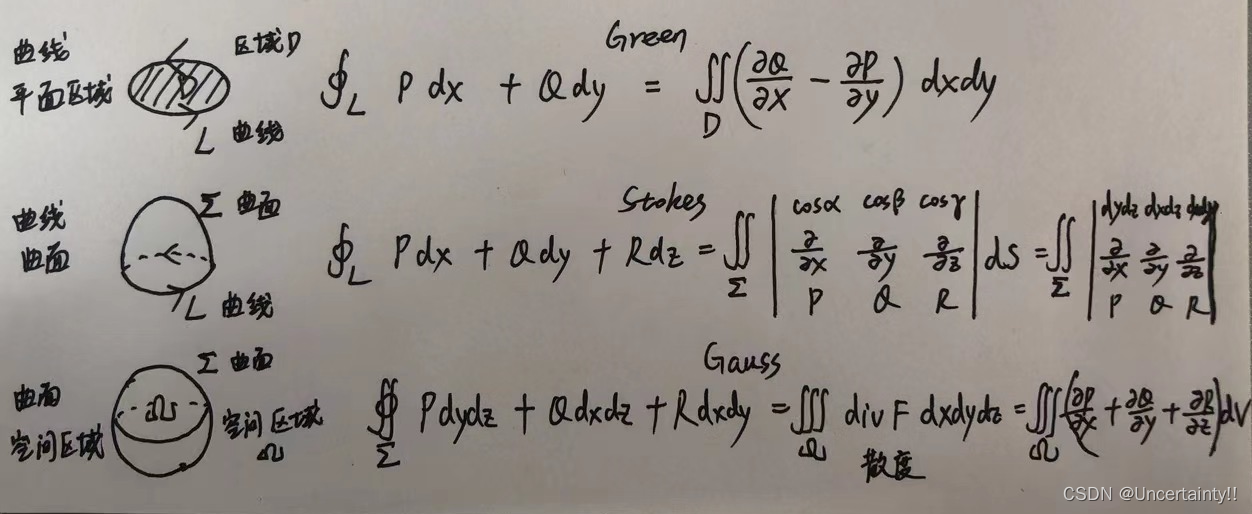 曲线
平面区域
区域D
D
L 曲线
Green
∮_L P dx + Q dy = ∬_D (∂Q/∂x - ∂P/∂y) dxdy
曲线
曲面
Σ 曲面
L 曲线
Stokes
∮_L P dx + Q dy + R dz = ∬_Σ | cosα cosβ cosγ ; ∂/∂x ∂/∂y ∂/∂z ; P Q R | dS = ∬_Σ | dydz dxdz dxdy ; ∂/∂x ∂/∂y ∂/∂z ; P Q R |
曲面
空间区域
Σ 曲面
Ω
空间区域
Ω
Gauss
∯_Σ P dydz + Q dxdz + R dxdy = ∭_Ω div F dxdydz = ∭_Ω (∂P/∂x + ∂Q/∂y + ∂R/∂z) dV
散度
CSDN @Uncertainty!!